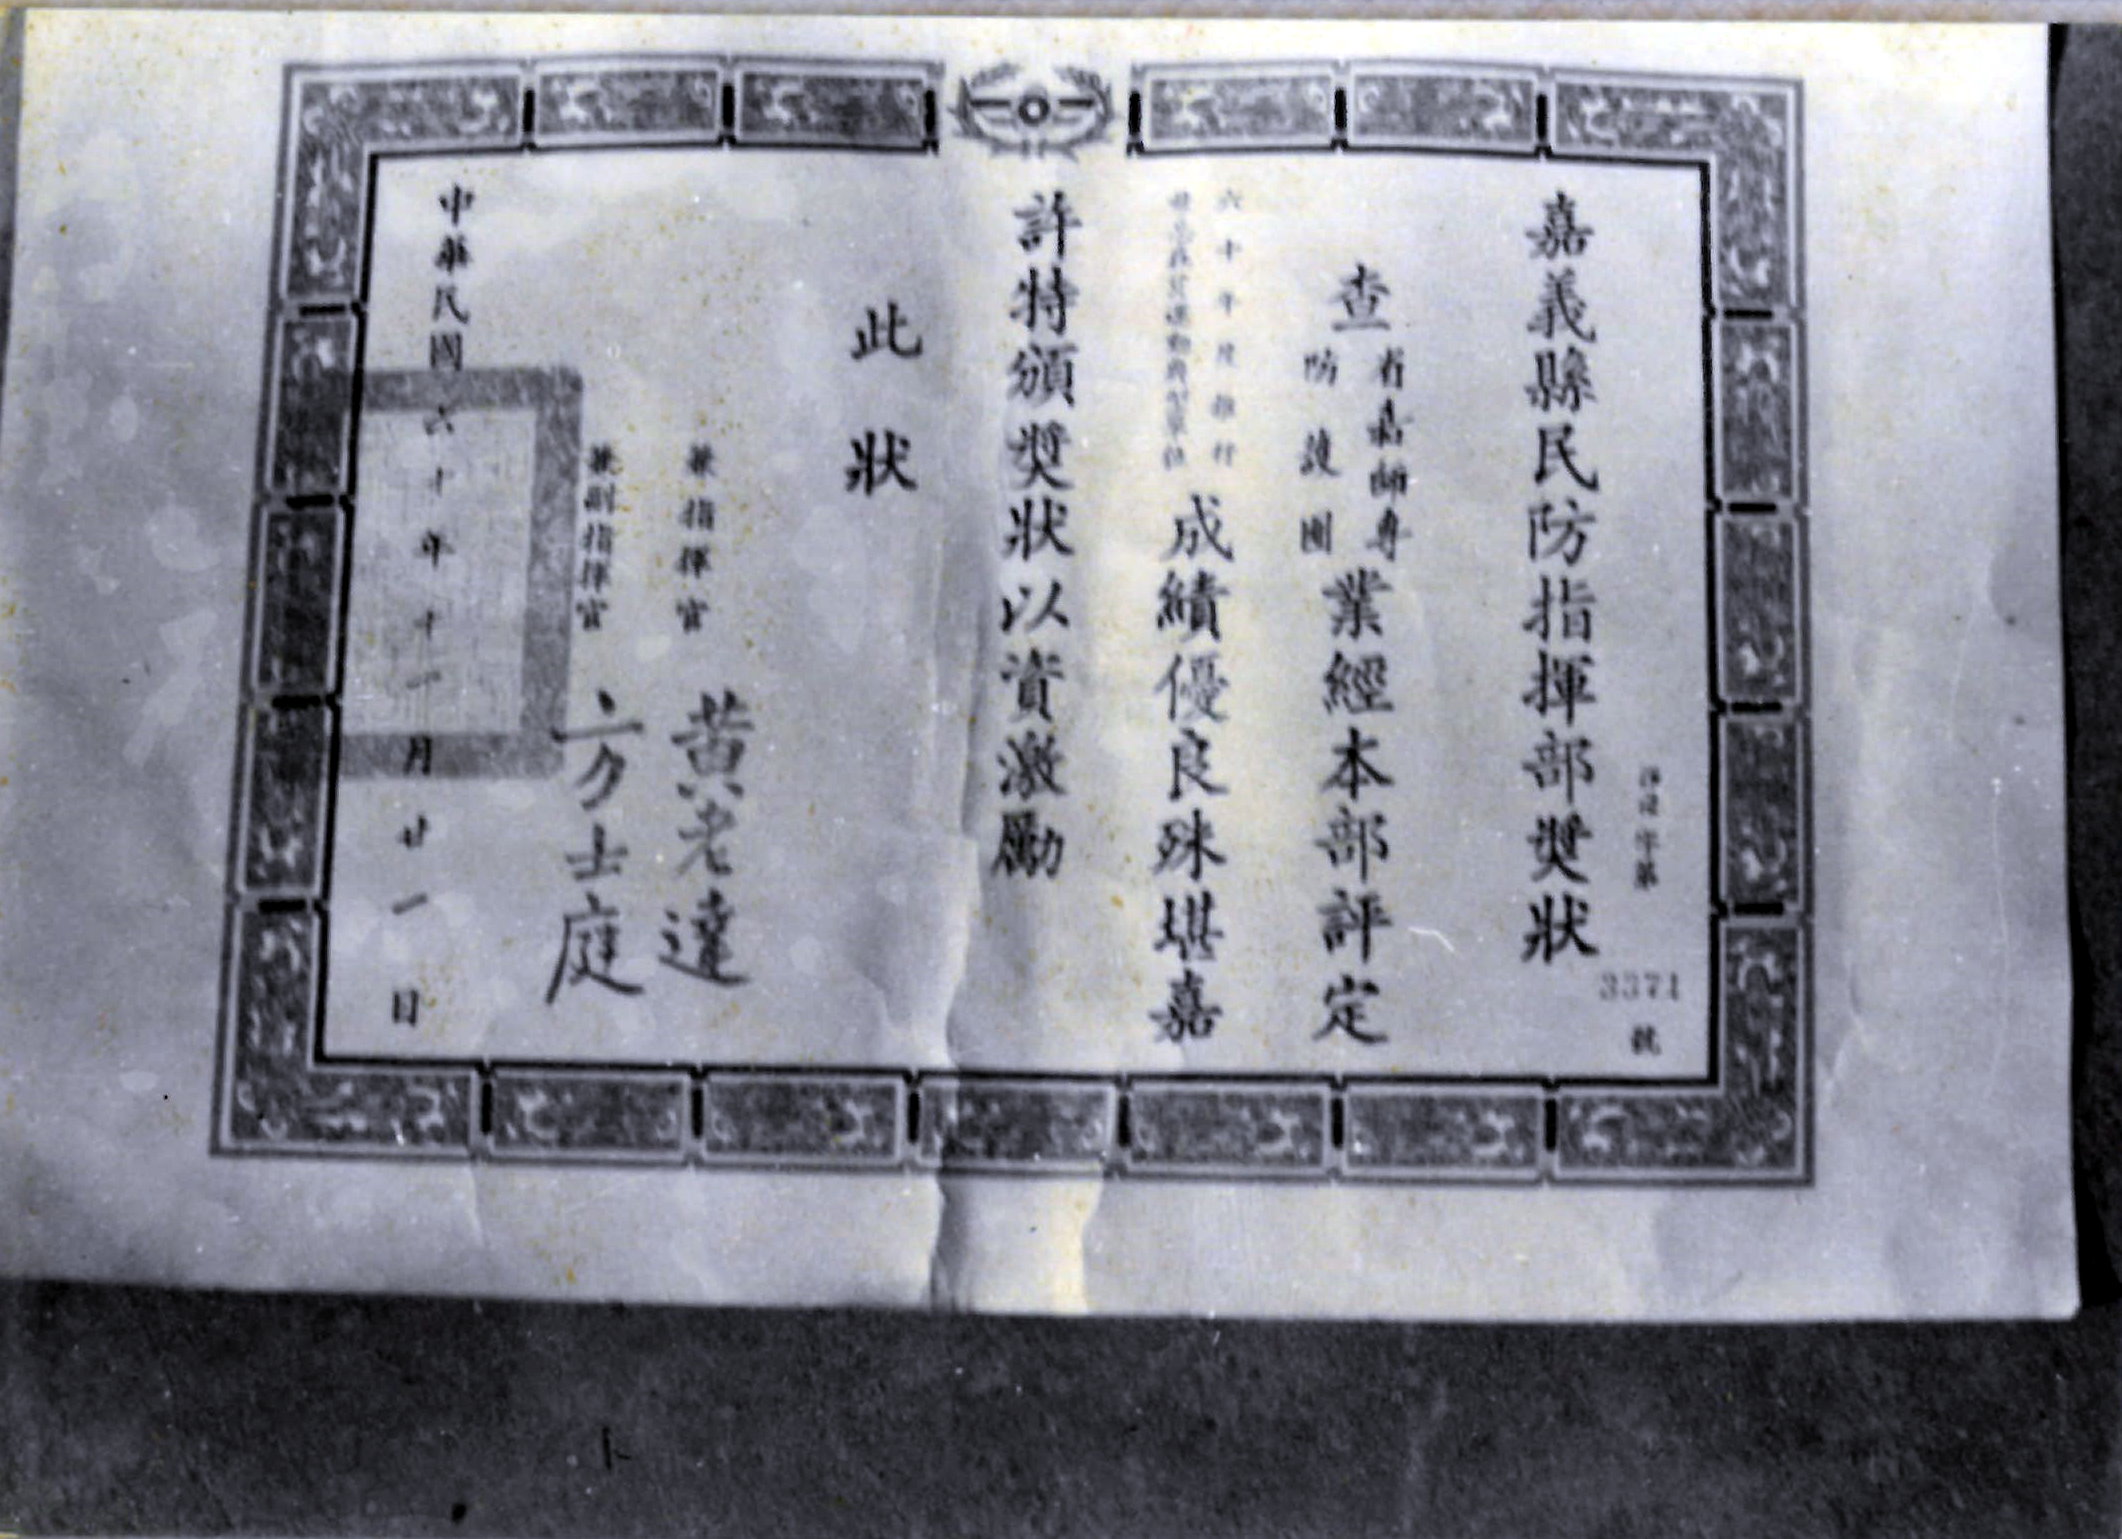 嘉義縣民防指揮部獎狀
字第3371號
查省嘉師專防護團業經本部評定
六十年度推行
成績優良殊堪嘉
許特頒獎狀以資激勵
此狀
兼指揮官 黃老達
兼副指揮官 方士庭
中華民國六十年十一月廿一日